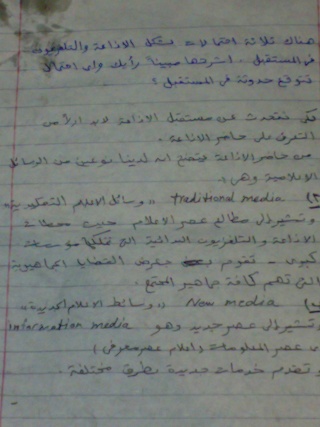 هناك ثلاثة احتمالات لشكل الاذاعة والتلفزيون
فى المستقبل . اشرحها مبينا رأيك واى احتمال
تتوقع حدوثة فى المستقبل ؟
لكى نتحدث عن مستقبل الاذاعة لابد اولا من
التعرف على حاضر الاذاعة .
من حاضر الاذاعة يتضح انه لدينا نوعين من الوسائل
الاعلامية وهى :
traditional media "وسائل الاعلام التقليدية"
وتشير الى عصر الاعلام حيث محطات
الاذاعة والتلفزيون التى تملكها مؤسسات
كبرى - تقوم بعرض القضايا الجماهيرية
التى تهم كافة جماهير المجتمع .
New media "وسائط الاعلام الجديدة"
وتشير الى عصر جديد وهو information media
عصر المعلومات (اعلام عصر معرفى)
وتقدم خدمات جديدة بطرق مختلفة .